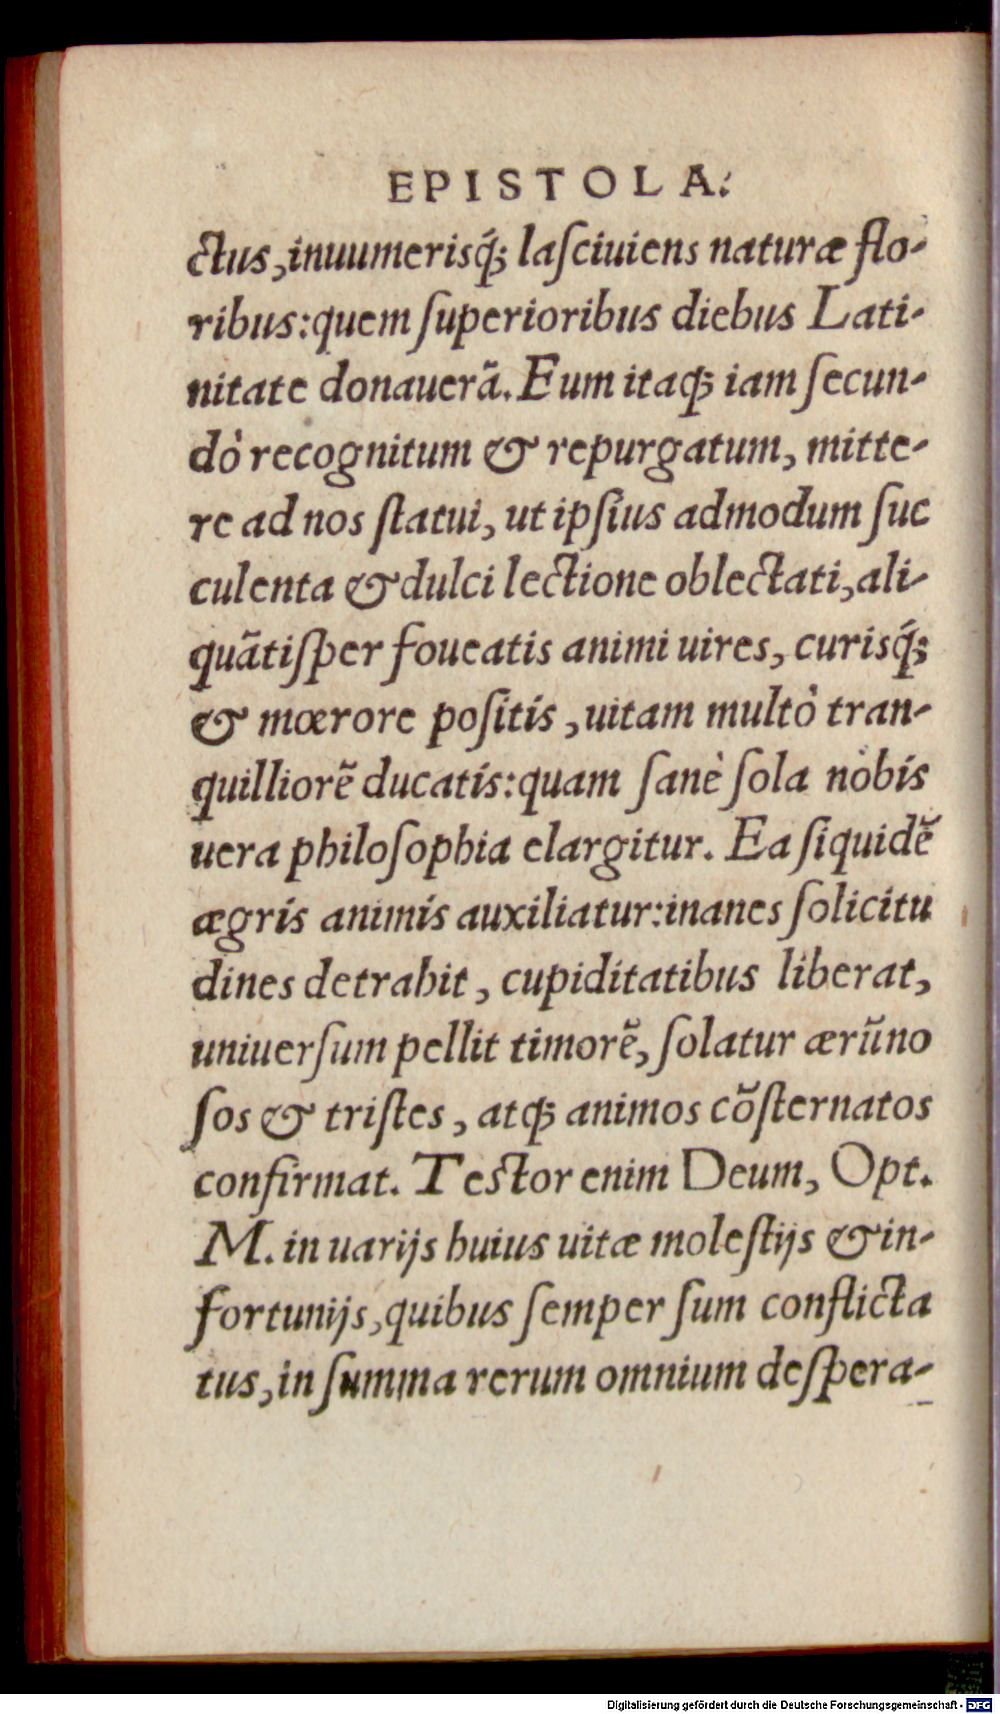 EPISTOLA.
ctus, inuumerisq́; laſciuiens naturæ flo-
ribus: quem ſuperioribus diebus Lati-
nitate donauerã. Eum itaq; iam ſecun-
dò recognitum & repurgatum, mitte-
re ad nos ſtatui, ut ipſius admodum ſuc
culenta & dulci lectione oblectati, ali-
quãtiſper foueatis animi uires, curisq́;
& mœrore poſitis, uitam multò tran-
quilliorẽ ducatis: quam ſanè ſola nobis
uera philoſophia elargitur. Ea ſiquidẽ
ægris animis auxiliatur: inanes ſolicitu
dines detrahit, cupiditatibus liberat,
uniuerſum pellit timorẽ, ſolatur ærũno
ſos & triſtes, atq; animos cõſternatos
confirmat. Teſtor enim Deum, Opt.
M. in uarijs huius uitæ moleſtijs & in-
fortunijs, quibus ſemper ſum conflicta
tus, in ſumma rerum omnium deſpera-
Digitalisierung gefördert durch die Deutsche Forschungsgemeinschaft - DFG